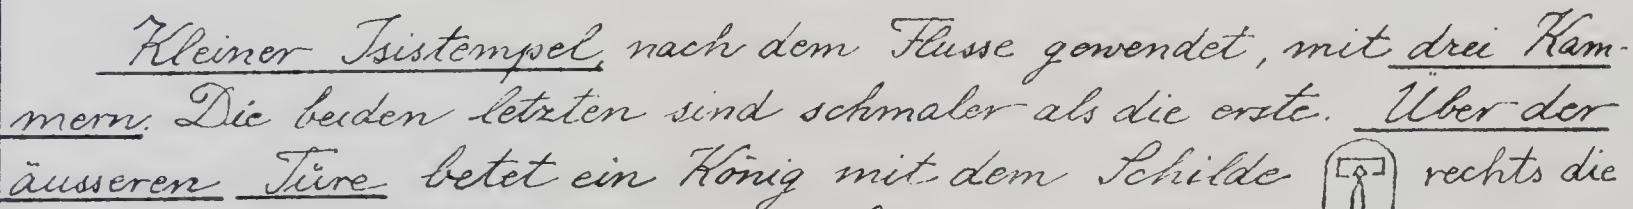 Kleiner Isistempel, nach dem Flusse gewendet, mit drei Kam-
mern. Die beiden letzten sind schmaler als die erste. Über der
äusseren Türe betet ein König mit dem Schilde rechts die